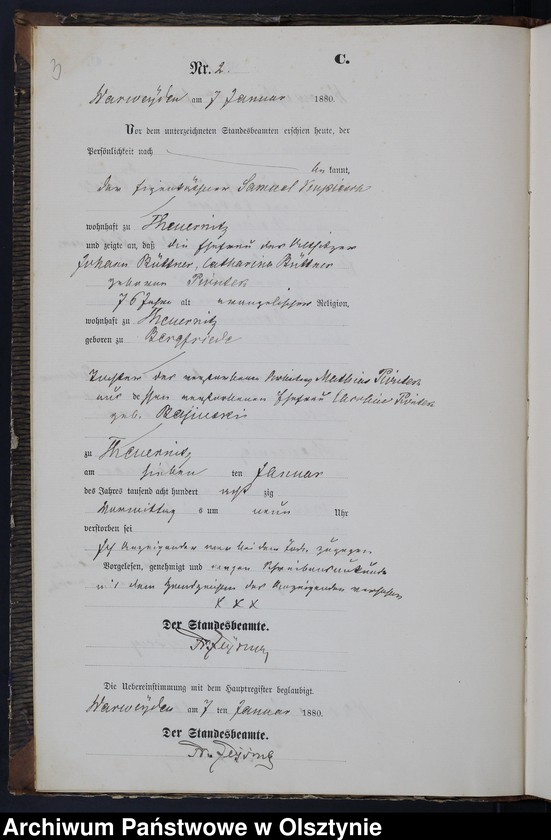 3
C.
Nr. 2.
Warweyden am 7 Januar 1880.
Vor dem unterzeichneten Standesbeamten erschien heute, der
Persönlichkeit nach
be kannt,
der Eigenkäthner Samuel
wohnhaft zu Theuernitz
und zeigte an, daß die Ehefrau des Altsitzer
Johann Büttner, Catharina Büttner
geborene
76 Jahre alt evangelischer Religion,
wohnhaft zu Theuernitz
geboren zu Bergfriede
Tochter des verstorbenen Mathias
und dessen verstorbenen Ehefrau Caroline
geb.
zu Theuernitz
am sieben ten Januar
des Jahres tausend acht hundert acht zig
Vormittag s um neun Uhr
verstorben sei
Anzeigender war bei dem Tode zugegen.
Vorgelesen, genehmigt und wegen Schreibensunkunde
mit dem Handzeichen des Anzeigenden versehen
x x x
Der Standesbeamte.
Die Uebereinstimmung mit dem Hauptregister beglaubigt.
Warweyden am 7 ten Januar 1880.
Der Standesbeamte.
Archiwum Państwowe w Olsztynie